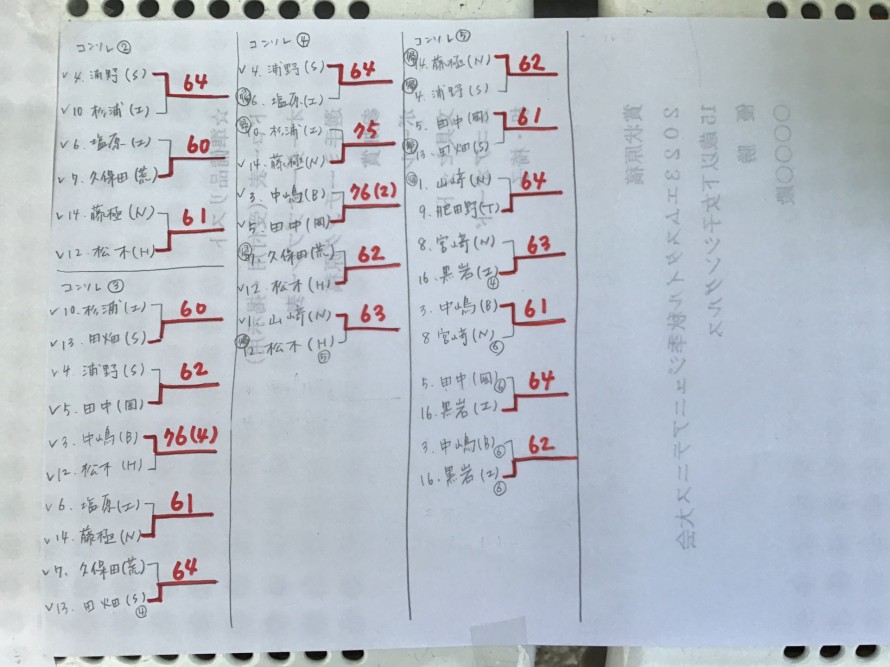 コンソレ②
v 4. 浦野(S)
64
v 10 杉浦(エ)
v 6. 塩原(エ)
60
v 7. 久保田(荒)
v 14. 藤極(N)
61
v 12. 松木(H)
コンソレ③
v 10. 杉浦(エ)
60
v 13. 田畑(S)
v 4. 浦野(S)
62
v 5. 田中(園)
v 3. 中嶋(B)
76(4)
v 12. 松木(H)
v 6. 塩原(エ)
61
v 14. 藤極(N)
v 7. 久保田(荒)
64
v 13. 田畑(S)
④
コンソレ④
v 4. 浦野(S)
64
6. 塩原(エ)
10. 杉浦(エ)
75
v 14. 藤極(N)
v 3. 中嶋(B)
76(2)
v 5. 田中(園)
7. 久保田(荒)
62
v 12. 松木(H)
v 1. 山崎(N)
63
12. 松木(H)
⑤
コンソレ⑤
14. 藤極(N)
62
4. 浦野(S)
5. 田中(園)
61
13. 田畑(S)
1. 山崎(N)
64
9. 肥田野(T)
8. 宮崎(N)
63
16. 黒岩(エ)
④
3. 中嶋(B)
61
8 宮崎(N)
⑥
5. 田中(園)⑥
64
16. 黒岩(エ)
3. 中嶋(B)⑥
62
16. 黒岩(エ)
⑥